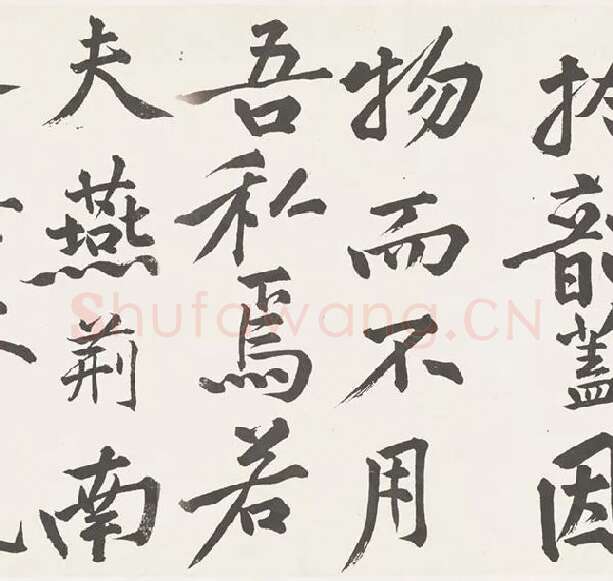 於韻蓋因
物而不用
吾私焉若
夫燕荆南
Shufawang.CN